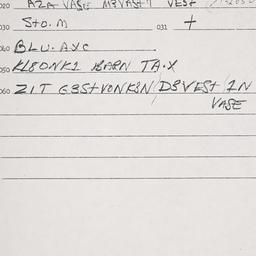 020 AZA VASE VEST
030 Sto. M 031 +
040 BLU. AXC
050 KL8ONK1 BARN TA.X
060 ZIT G3StVONK3N/D3VESt IN
VASE